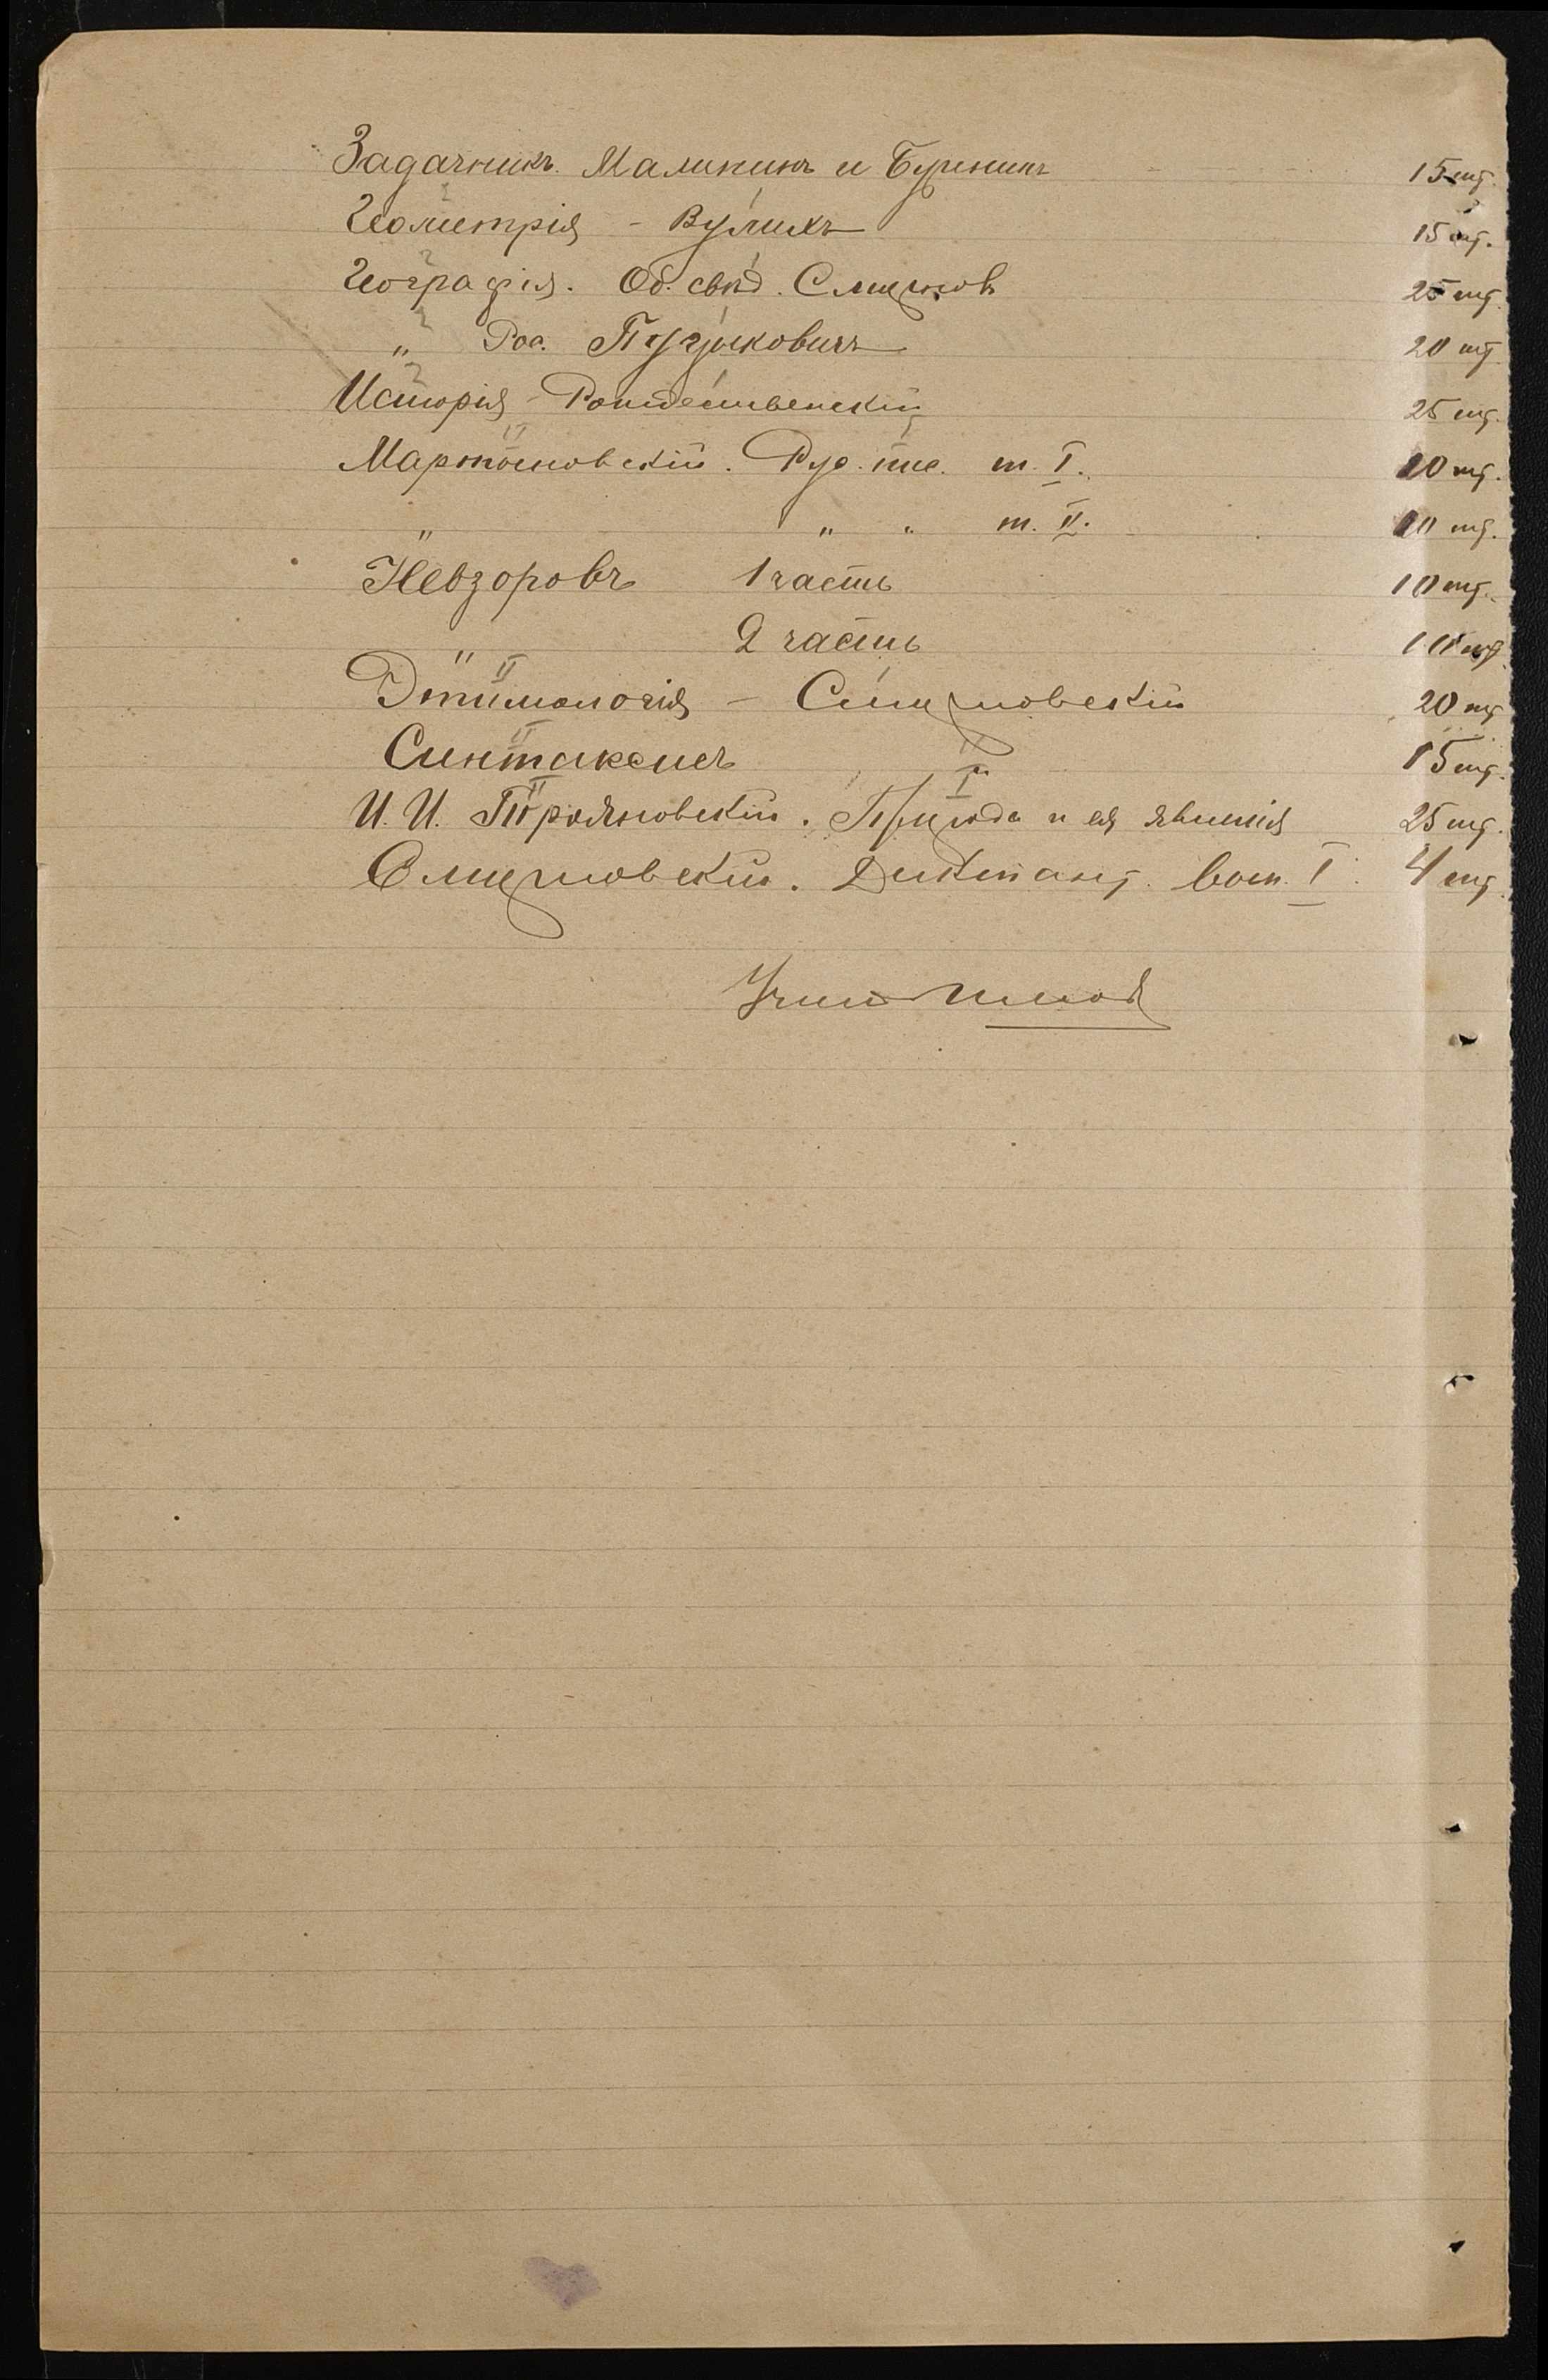 Задачникъ. Малининъ и Буренинъ 15 шт.
Геометрія - Вулихъ 15 шт.
Географія. Об. свѣд. Смирновъ 25 шт.
„ Рос. Пуцыковичъ 20 шт.
Исторія - Рождественскій 25 шт.
Мартыновскій. Рус. пис. т. I. 10 шт.
„ „ „ т. II. 10 шт.
Невзоровъ 1 часть 10 шт.
" 2 часть 10 шт.
Этимологія - Смирновскій 20 шт.
Синтаксисъ " 15 шт.
И. И. Трояновскій. Природа и ея явленія I 25 шт.
Смирновскій. Диктант. I 4 шт.